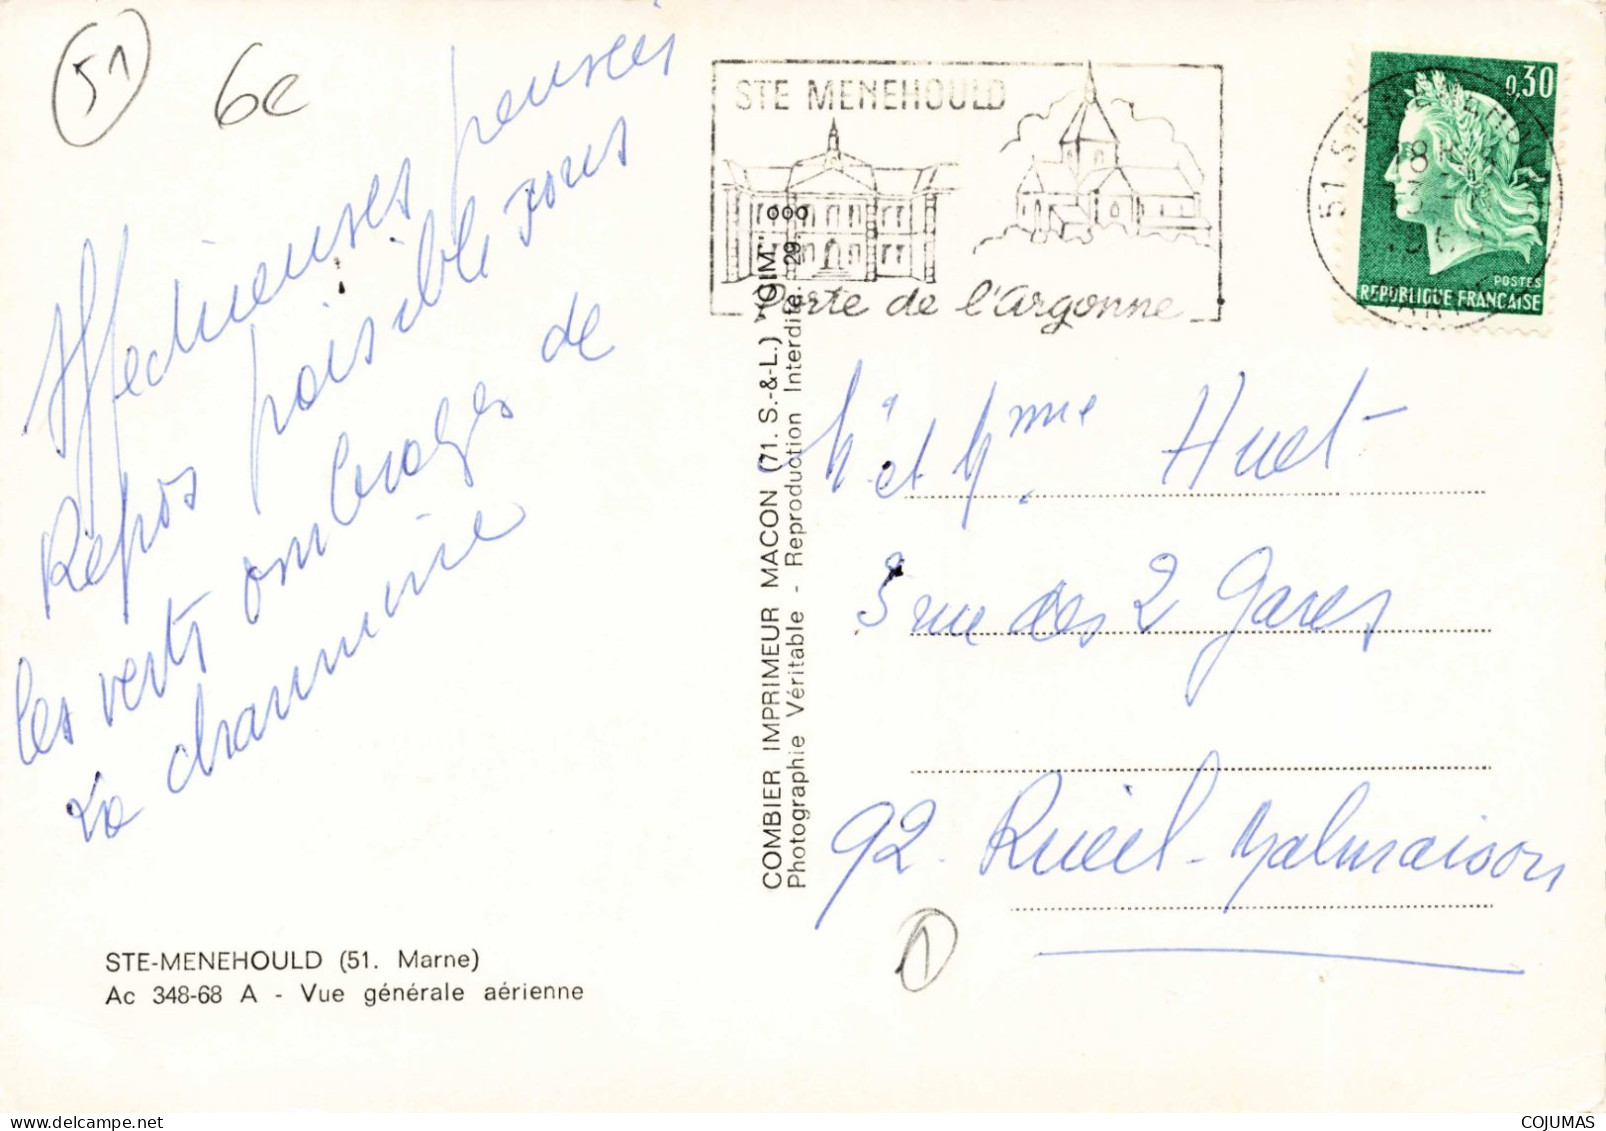 51
6e
Affectueuses pensées
Repos paisible sous
les verts ombrages de
la charmine
STE-MENEHOULD (51. Marne)
Ac 348-68 A - Vue générale aérienne
COMBIER IMPRIMEUR MACON (71. S.-&-L.) "CIM"
Photographie Véritable - Reproduction Interdite. 29.
STE MENEHOULD
Porte de l'Argonne
51 STE MENEHOULD
0,30
POSTES
REPUBLIQUE FRANCAISE
Mr et Mme Huet
3 rue des 2 Gares
92. Rueil-Malmaison
1
COJUMAS